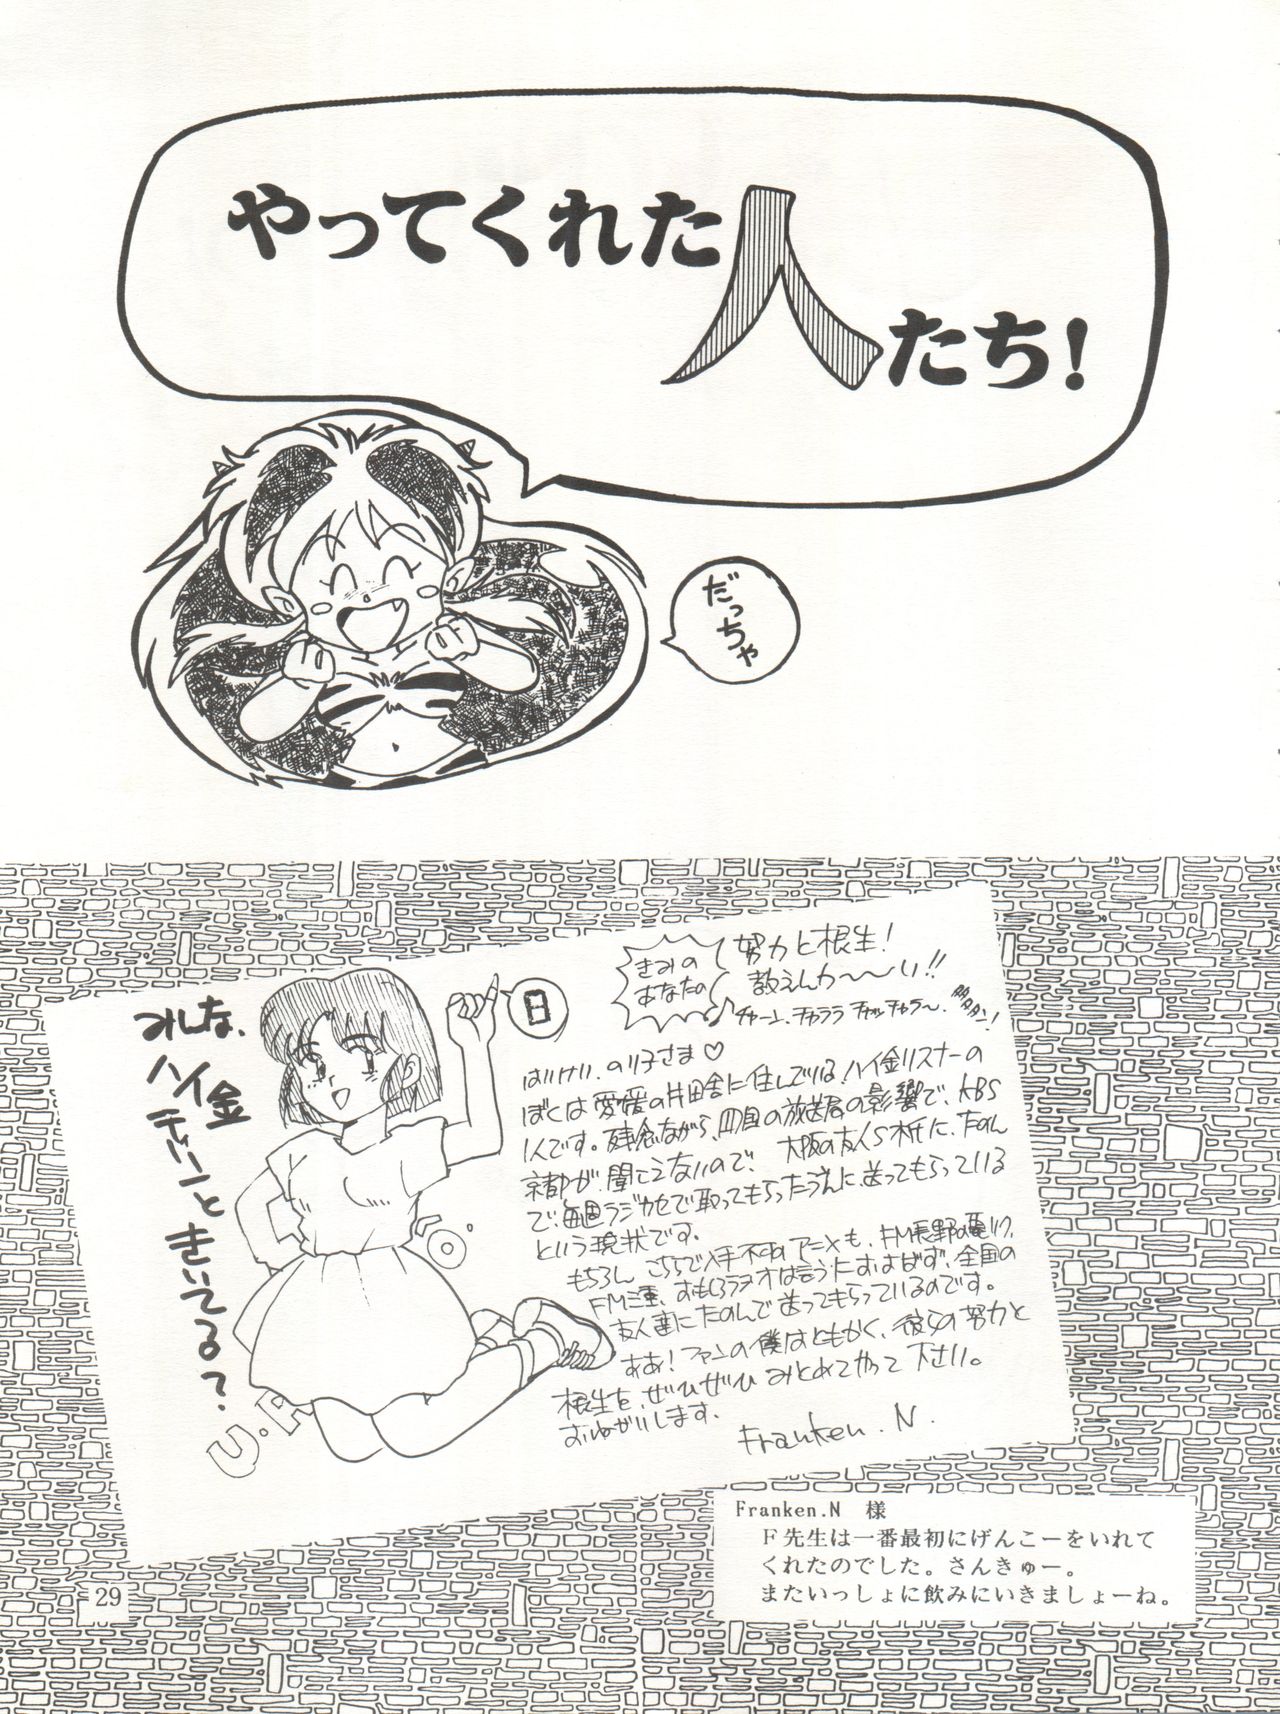 やってくれた
人たち!
だっちゃ
努力と根生!
きみの
あなたの
教えんかー〜〜い!!
チャーン、チャララ チャッチャラ〜、
日
みんな、
ハイ金
きいてる?
はいけい、のり子さま♡
ぼくは愛媛の片田舎に住んでいる、ハイ金リスナーの
1人です。残念ながら、四国の放送局の影響で、KBS
京都が、聞こえないので、大阪の友人S木氏に、たのん
で、毎週ラジカセで取ってもらったうえに、送ってもらっている
という現状です。
もちろん、こちらで入手不可のアニメも、FM長野の
FM三重、すもも はおよばず、全国の
友人達にたのんで送ってもらっているのです。
ああ!ファンの僕はともかく、彼らの努力と
根生を、ぜひぜひ みとめてやって 下さい。
おねがいします。
Franken.N.
U.F.O.
Franken.N 様
F先生は一番最初にげんこーをいれて
くれたのでした。さんきゅー。
またいっしょに飲みにいきましょーね。
29